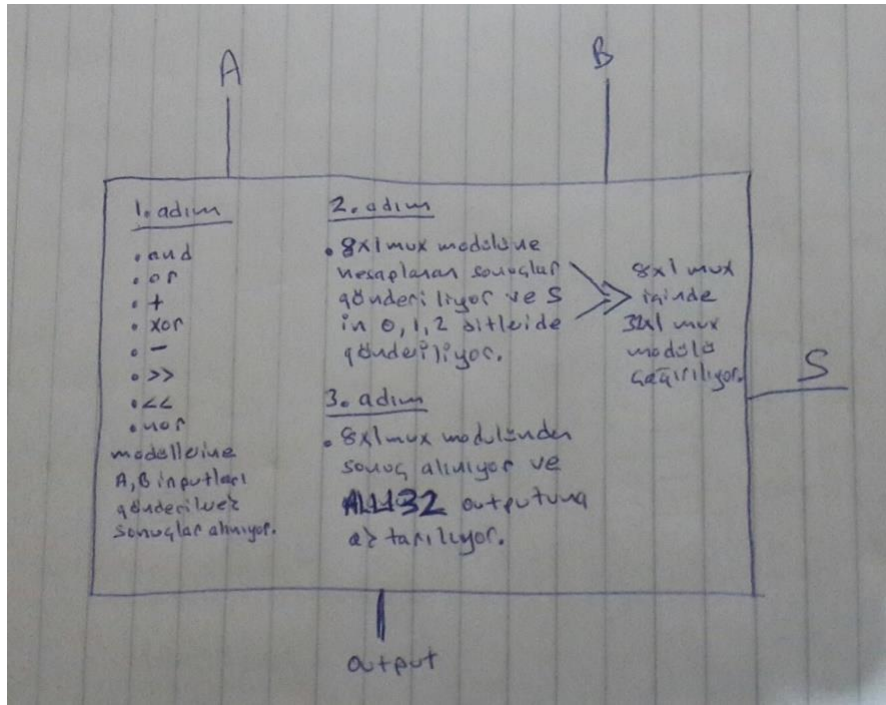 A
B
1. adım
. and
. or
. +
. xor
. -
. >>
. <<
. nor
modüllerine
A, B inputları
gönderilip
sonuçlar alınıyor.
2. adım
. 8x1 mux modülüne
hesaplanan sonuçlar
gönderiliyor ve S
in 0, 1, 2 bitleride
gönderiliyor.
8x1 mux
içinde
32x1 mux
modülü
çağırılıyor.
3. adım
. 8x1 mux modülünden
sonuç alınıyor ve
ALU32 outputuna
aktarılıyor.
S
output